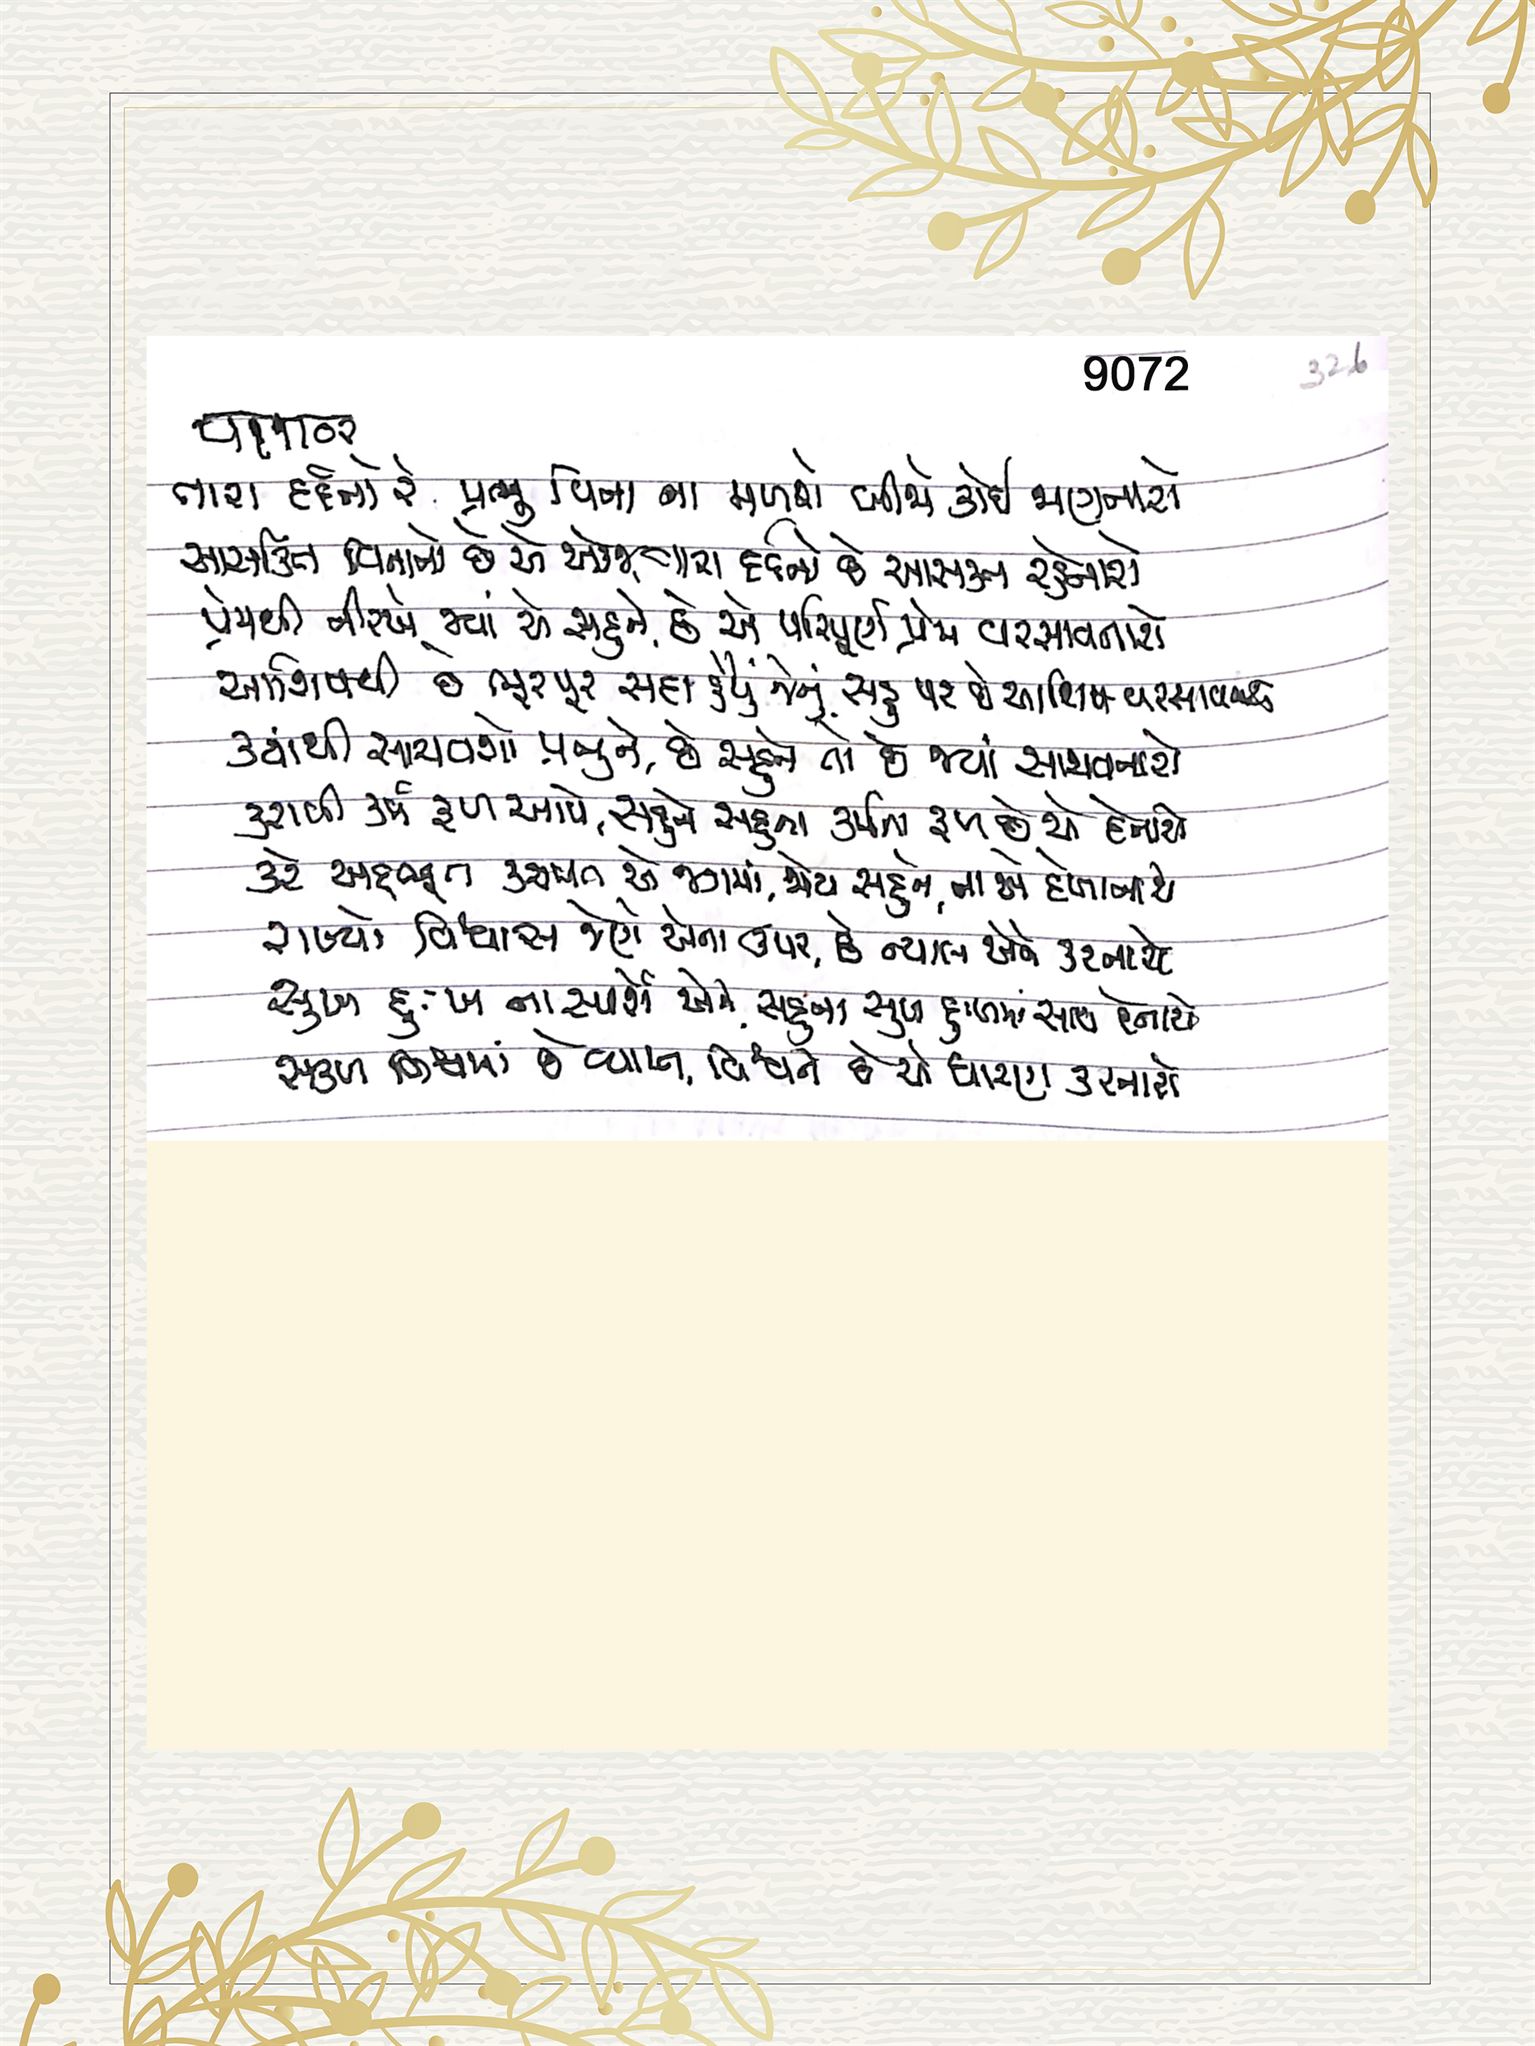 9072
326
તારા દર્દનો રે પ્રભુ વિના ના મળશે બીજો કોઈ જાણનારો
આસક્તિ વિનાનો છે એ એકજ, તારા દર્દનો છે આસક્ત રહેનારો
પ્રેમથી નીરખે જ્યાં એ સહુને, છે એ પરિપૂર્ણ પ્રેમ વરસાવનારો
આશિષથી છે ભરપૂર સદા હૈયું જેનું, સહુ પર છે આશિષ
ક્યાંથી સાચવશો પ્રભુને, છે સહુને તો છે જ્યાં સાચવનારો
કરાવી કર્મ ફળ આપે, સહુને સહુના કર્મના ફળ છે એ દેનારો
કરે અદ્ભૂત કરામત એ જગમાં, જોય સહુને, ના એ દેખાનારો
રાખ્યો વિશ્વાસ જેણે એના ઉપર, છે ન્યાલ એને કરનારો
સુખ દુઃખ ના સ્પર્શે એને, સહુના સુખ દુઃખમાં સાથ દેનારો
સકળ વિશ્વમાં છે વ્યાપ્ત, વિશ્વને છે એ ધારણ કરનારો